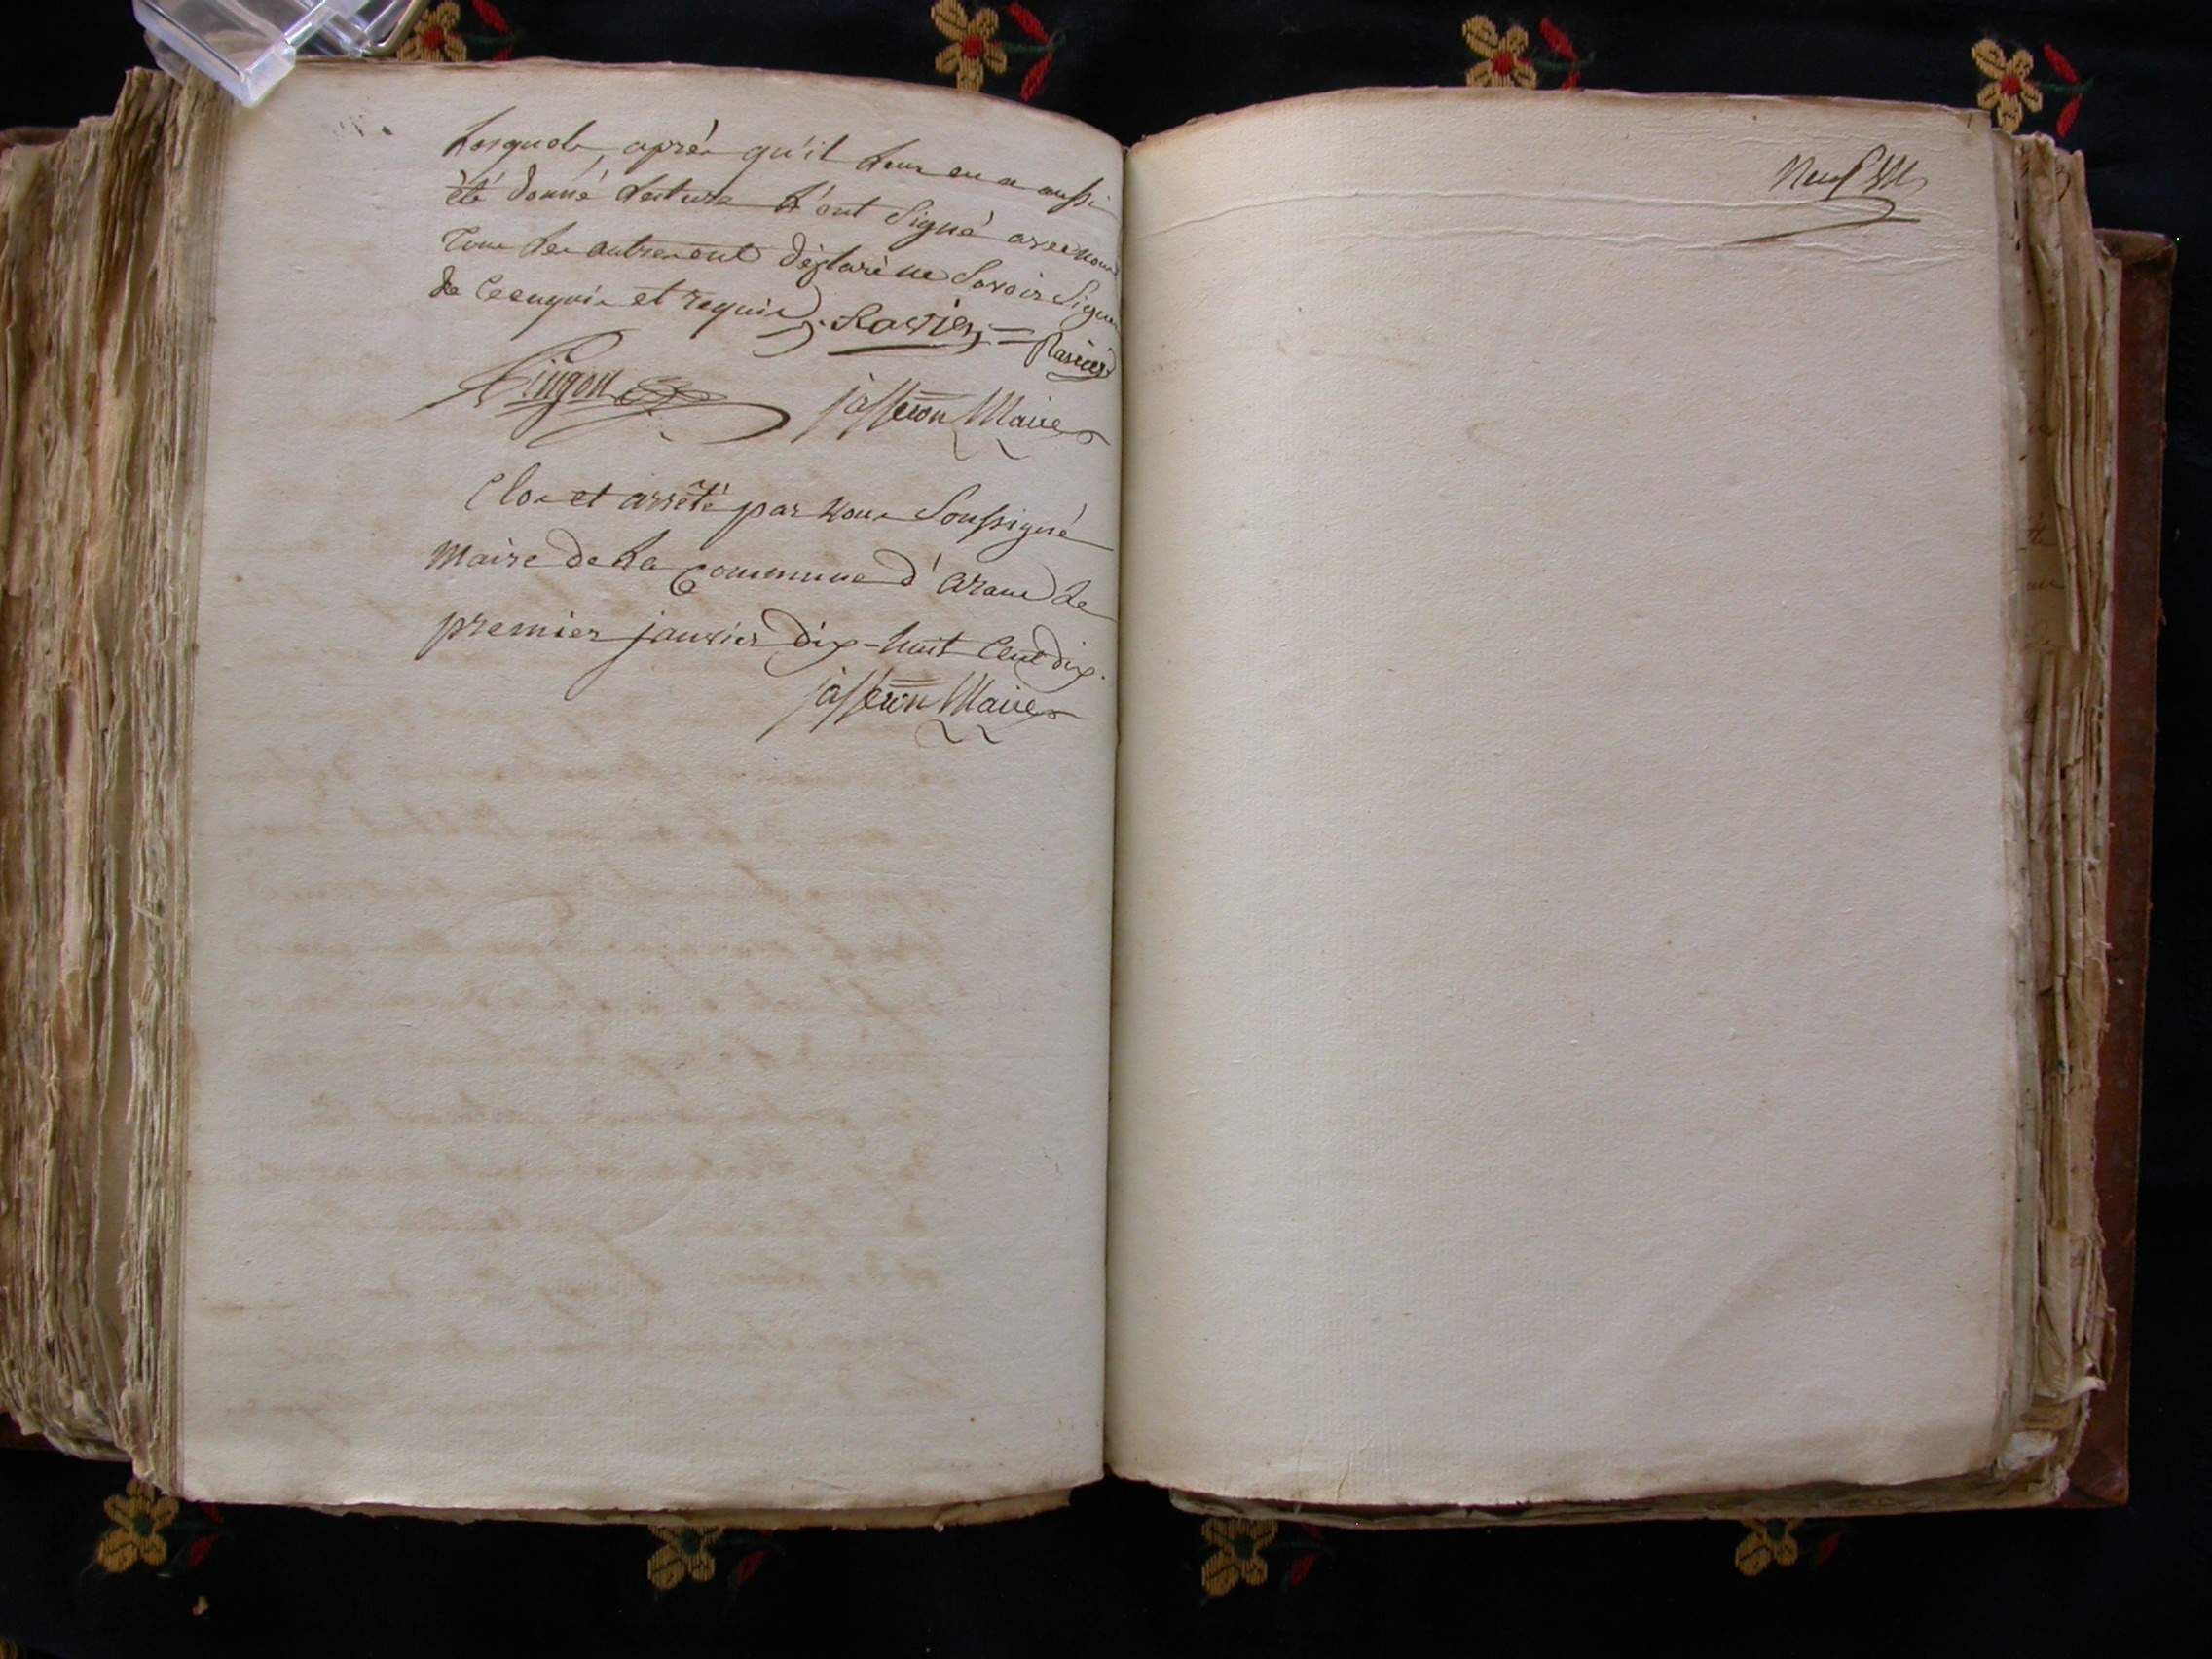 Lesquels, après qu'il leur en a aussi
été donné lecture l'ont signé avec nous
tous les autres ont déclaré ne savoir signer
de ce enquis et requis. Ravier Ravier
Pingon jasseron Maire
Clos et arrêté par nous soussigné
maire de la commune d'aran le
premier janvier dix-huit cent dix.
jasseron Maire
Neuf